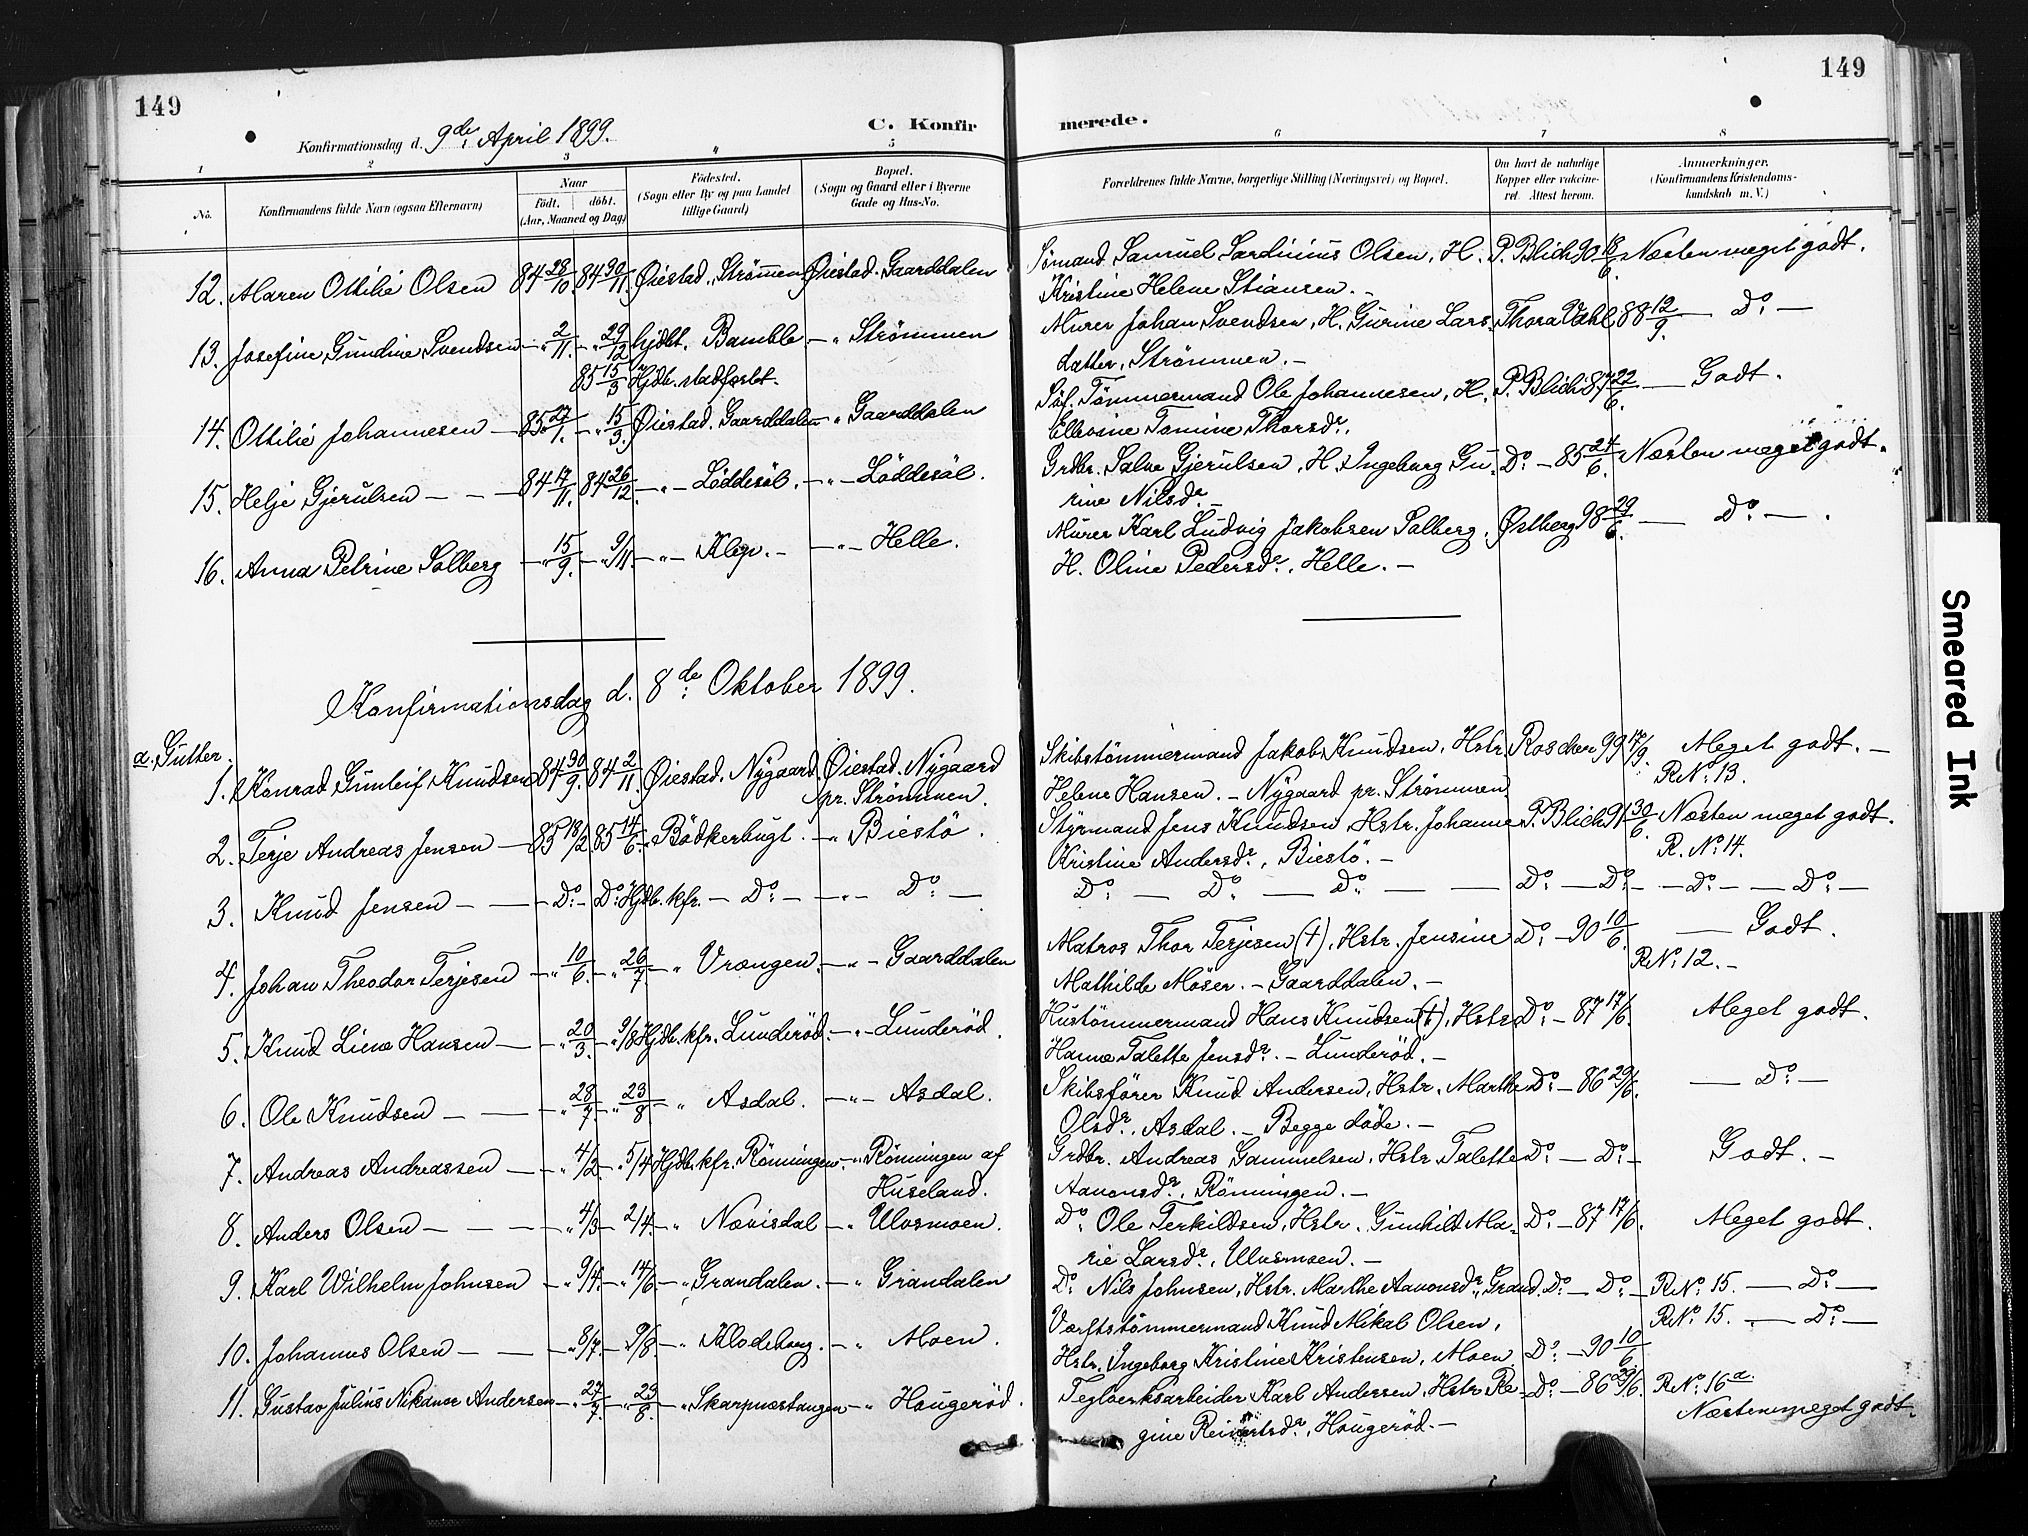 149
149
C. Konfirmerede.
Konfirmationsdag d. 9de April 1899.
1 2 3 4 5 6 7 8
No. Konfirmandens fulde Navn (ogsaa Efternavn) Naar födt. döbt. (Aar, Maaned og Dag) Födested. (Sogn eller By og paa Landet tillige Gaard) Bopæl. (Sogn og Gaard eller i Byerne Gade og Hus-No. Forældrenes fulde Navne, borgerlige Stilling (Næringsvei) og Bopæl. Om havt de naturlige Kopper eller vakcineret. Attest herom. Anmærkninger. (Konfirmandens Kristendomskundskab m. V.)
12. Maren Ottilie Olsen 84 28/10. 84 30/11. Øiestad. Strömmen Øiestad. Gaarddalen Sömand Samuel Sardinius Olsen, H. P. Blich 90 18/6. Næsten meget godt.
Kristine Helene Stiansen. -
13. Josefine Gundine Svendsen - " 2/11. - " 29/12 hjdbt. Bamble - " Strömmen Murer Johan Svendsen, H. Gurine Lars- Thora Vahl 88 12/9. — Do. —
85 15/3 Hjdb. stadfæstet. datter, Strömmen. -
14. Ottilie Johannesen - 85 27/1. - " 15/3. Øiestad. Gaarddalen - " Gaarddalen Töm̄mermand Ole Johannesen, H. P. Blich 87 22/6. — Godt.
Ellevine Tomine Thorsdr.
15. Helje Gjerulsen - - - 84 17/11. 84 26/12. - " - Löddesöl. - " - Löddesöl. Grdbr. Salve Gjerulsen, H. Ingeborg Gu- Do. - 85 24/6. Næsten meget godt.
rine Nilsdr. -
16. Anna Petrine Solberg - " 15/9. - " 9/11 - " - Klep. - - " - Helle. Murer Karl Ludvig Jakobsen Solberg, Østberg 98 29/6. — Do. — .
H. Oline Pedersdr., Helle. -
Konfirmationsdag d. 8de Oktober 1899.
a. Gutter.
1. Konrad Gunleif Knudsen 84 30/9. 84 2/11. Øiestad. Nygaard. Øiestad. Nygaard Skibstömmermand Jakob Knudsen, Hstr. Roscher 99 17/9. Meget godt. -
pr. Strömmen. Helene Hansen. - Nygaard pr. Strömmen. R No. 13.
2. Terje Andreas Jensen - 85 18/2 85 14/6. " Bödkerbugt. - " Biestö. Styrmand Jens Knudsen, Hstr. Johanne P. Blich 91 30/6. Næsten meget godt.
Kristine Andersdr., Biestö. - R. No. 14.
3. Knud Jensen - — - Do. - Do. Hjdb. kfr. - Do. - - " - Do. — Do. — Do. — Do. — — Do. — Do. - - Do. - - Do. -
4. Johan Theodor Terjesen - " 10/6. - " 26/7. - " Vrængen. - " - Gaarddalen Matros Thor Terjesen (†), Hstr. Jensine Do. - 90 10/6. — Godt.
Mathilde Möser. - Gaarddalen. - R No. 12. -
5. Knud Hansen — - " 20/3. - " 9/8 Hjdb. kfr. Lunderöd. - " - Lunderöd. Hustömmermand Hans Knudsen (†), Hstr. Do. - 87 17/6. Meget godt.
Hanne Talette Jensdr. - Lunderöd. -
6. Ole Knudsen — — - " 28/7. - " 23/8 - " Asdal. - " - Asdal. Skibsförer Knud Andersen, Hstr. Marthe Do. - 86 29/6. — Do. —
Olsdr., Asdal. - Begge döde. -
7. Andreas Andreassen - " 4/2 - " 5/4 Hjdb. kfr. Rönningen - " Rönningen af Grdbr. Andreas Gammelsen, Hstr. Talette Do. — Do. - Godt. -
Huseland. Aanonsdr., Rönningen. -
8. Anders Olsen - — — - " 4/3 - " 2/4. - " Nævisdal - " Ulvsmoen. Do. Ole Terkildsen, Hstr. Gunhild Ma- Do. - 87 17/6. Meget godt.
rie Larsdr., Ulvsmoen. -
9. Karl Wilhelm Johnsen - " 9/4 - " 14/6 - " Grandalen. - " Grandalen Do. Nils Johnsen, Hstr. Marthe Aanonsdr., Grand. Do. - Do. - R No. 15. — Do. —
10. Johannes Olsen — — - " 8/7. - " 9/8. - " Klodeborg. - " Moen. Værftstömmermand Knud Mikal Olsen, R No. 15. — Do. —
Hstr. Ingeborg Kristine Kristensen, Moen Do. - 90 10/6.
11. Gustav Julius Nikanor Andersen - " 27/7. - " 23/8. - " Skarpnæstangen - " Haugeröd. Teglverksarbeider Karl Andersen, Hstr. Re- Do. - 86 29/6. R No. 16a.
gine Reinertsdr., Haugeröd. - Næsten meget godt.
Smeared Ink